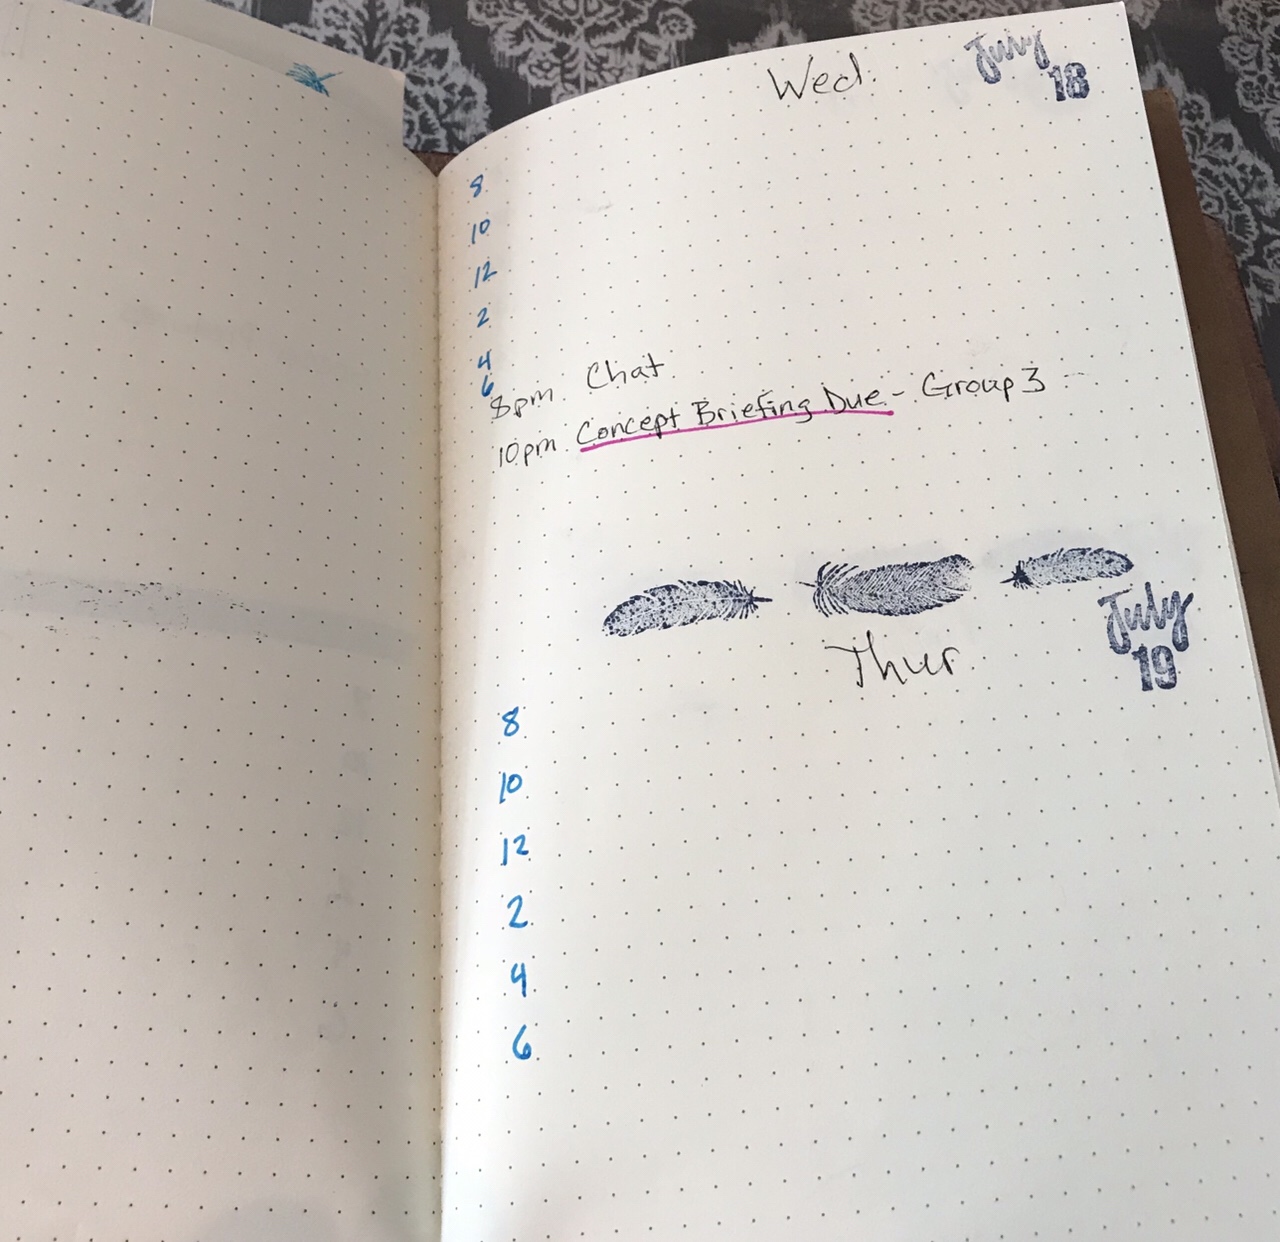 Wed.
July
18
8
10
12
2
4
6
8pm Chat
10pm Concept Briefing Due - Group 3
July
19
Thur
8
10
12
2
4
6